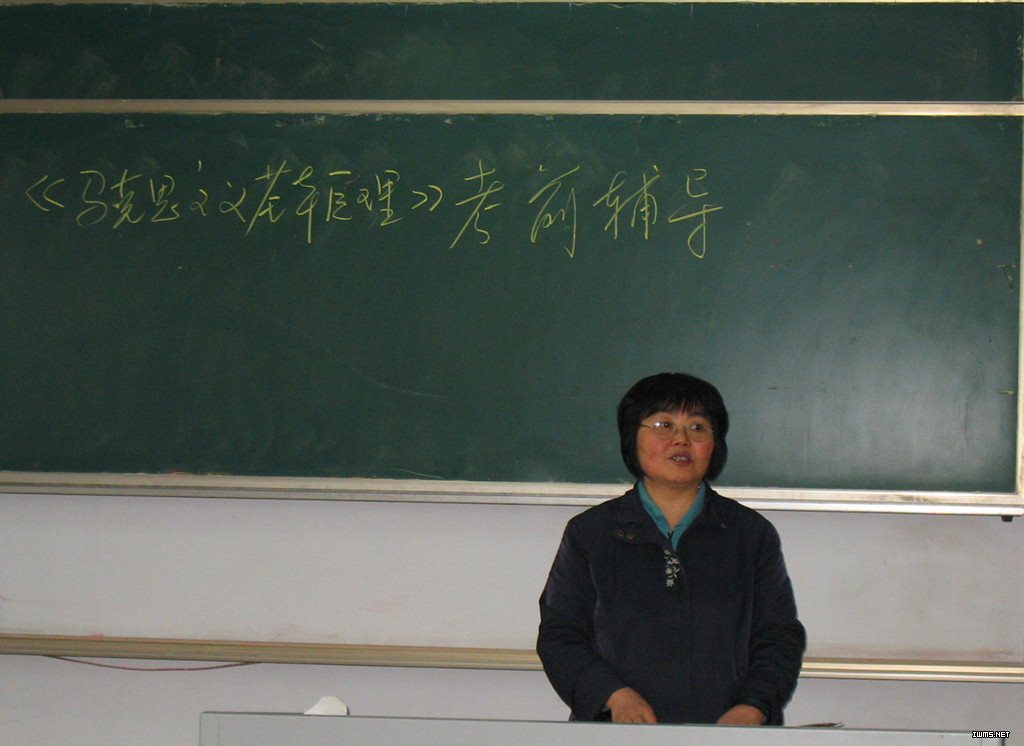 《马克思主义基本原理》考前辅导
IWMS.NET